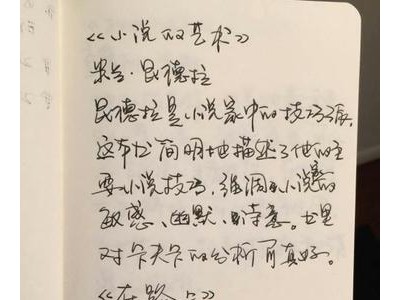 《小说的艺术》
米兰·昆德拉
昆德拉是小说家中的技巧派。
这本书简明地描述了他的主
要小说技巧，强调小说的
敏感、幽默、诗意。书里
对卡夫卡的分析可真好。
《在路上》